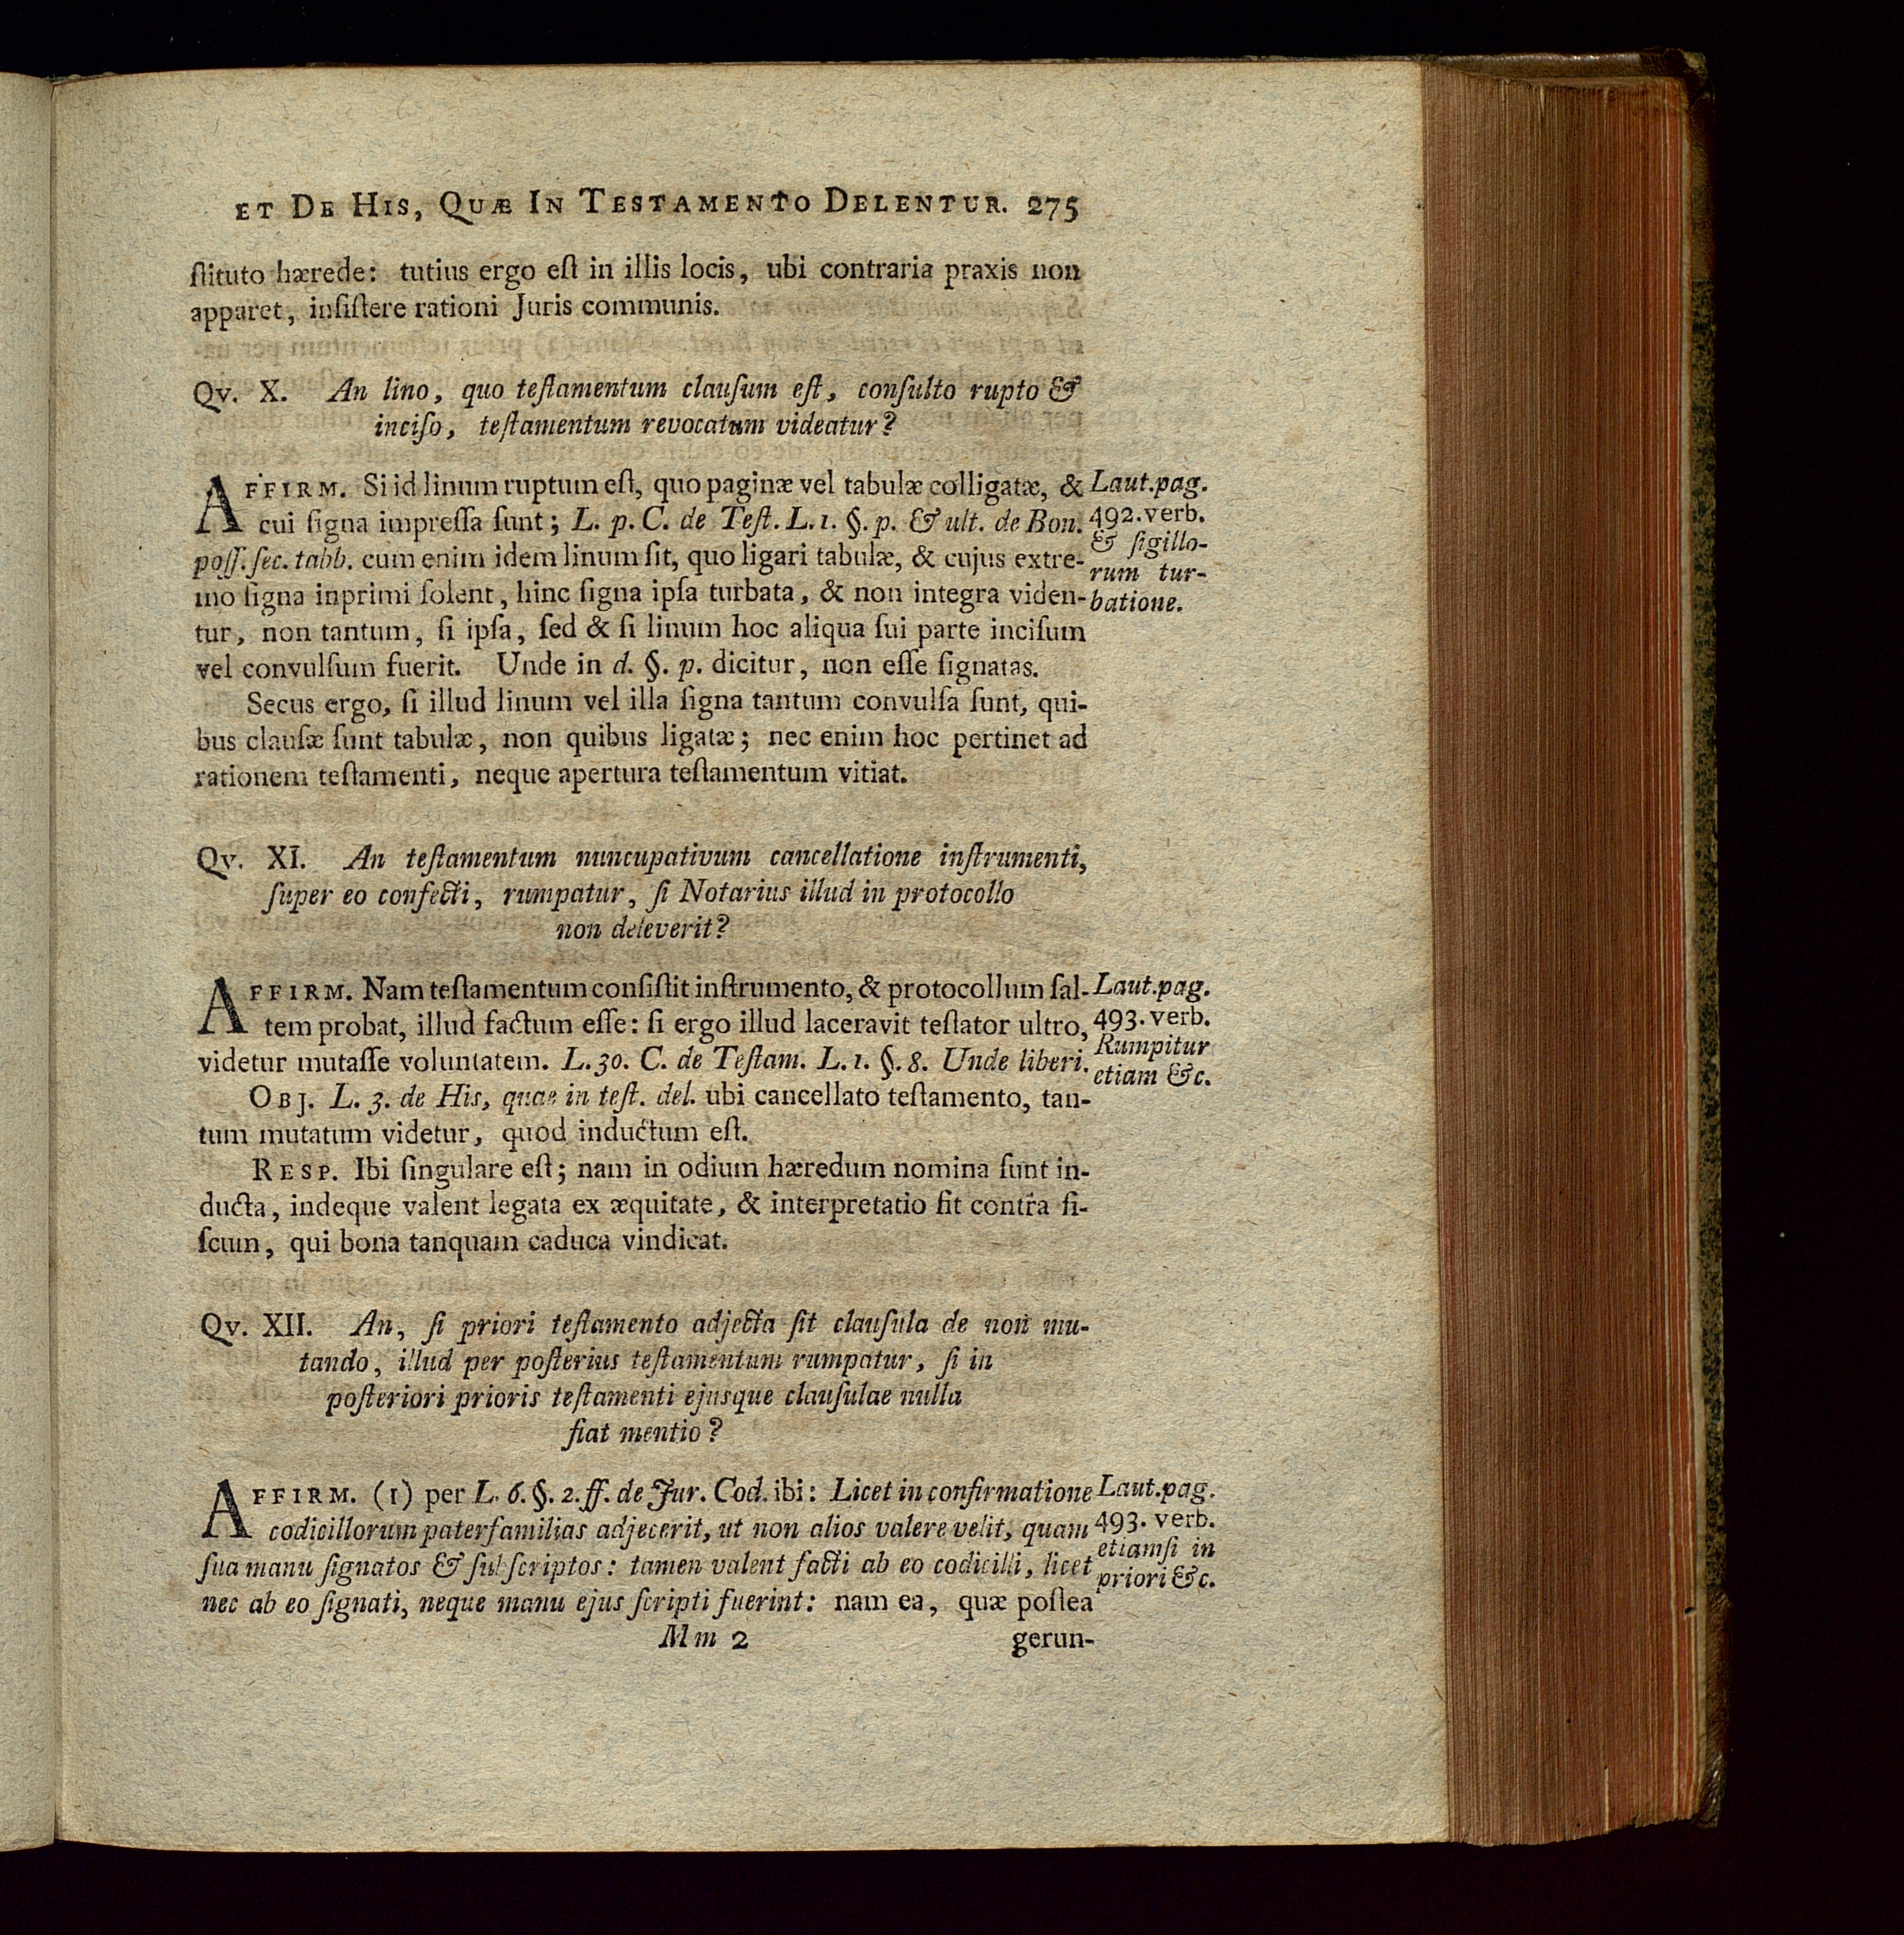 ET DE HIS, QUÆ IN TESTAMENTO DELENTUR. 275
ſtituto hærede: tutius ergo eſt in illis locis, ubi contraria praxis non
apparet, inſiſtere rationi Juris communis.
Qv. X. An lino, quo teſtamentum clauſum eſt, conſulto rupto &
inciſo, teſtamentum revocatum videatur?
AFFIRM. Si id linum ruptum eſt, quo paginæ vel tabulæ colligatæ, &
cui ſigna impreſſa ſunt; L. p. C. de Teſt. L. 1. §. p. & ult. de Bon.
poſſ. ſec. tabb. cum enim idem linum ſit, quo ligari tabulæ, & cujus extre-
mo ſigna inprimi ſolent, hinc ſigna ipſa turbata, & non integra viden-
tur, non tantum, ſi ipſa, ſed & ſi linum hoc aliqua ſui parte inciſum
vel convulſum fuerit. Unde in d. §. p. dicitur, non eſſe ſignatas.
Laut. pag.
492. verb.
& ſigillo-
rum tur-
batione.
Secus ergo, ſi illud linum vel illa ſigna tantum convulſa ſunt, qui-
bus clauſæ ſunt tabulæ, non quibus ligatæ; nec enim hoc pertinet ad
rationem teſtamenti, neque apertura teſtamentum vitiat.
Qv. XI. An teſtamentum nuncupativum cancellatione inſtrumenti,
ſuper eo confecti, rumpatur, ſi Notarius illud in protocollo
non deleverit?
AFFIRM. Nam teſtamentum conſiſtit inſtrumento, & protocollum ſal-
tem probat, illud factum eſſe: ſi ergo illud laceravit teſtator ultro,
videtur mutaſſe voluntatem. L. 30. C. de Teſtam. L. 1. §. 8. Unde liberi.
Laut. pag.
493. verb.
Rumpitur
etiam &c.
OBJ. L. 3. de His, quae in teſt. del. ubi cancellato teſtamento, tan-
tum mutatum videtur, quod inductum eſt.
RESP. Ibi ſingulare eſt; nam in odium hæredum nomina ſunt in-
ducta, indeque valent legata ex æquitate, & interpretatio fit contra fi-
ſcum, qui bona tanquam caduca vindicat.
Qv. XII. An, ſi priori teſtamento adjecta ſit clauſula de non mu-
tando, illud per poſterius teſtamentum rumpatur, ſi in
poſteriori prioris teſtamenti ejusque clauſulae nulla
fiat mentio?
AFFIRM. (1) per L. 6. §. 2. ff. de Jur. Cod. ibi: Licet in confirmatione
codicillorum paterfamilias adjecerit, ut non alios valere velit, quam
ſua manu ſignatos & ſubſcriptos: tamen valent facti ab eo codicilli, licet
nec ab eo ſignati, neque manu ejus ſcripti fuerint: nam ea, quæ poſtea
Laut. pag.
493. verb.
etiamſi in
priori &c.
Mm 2 gerun-